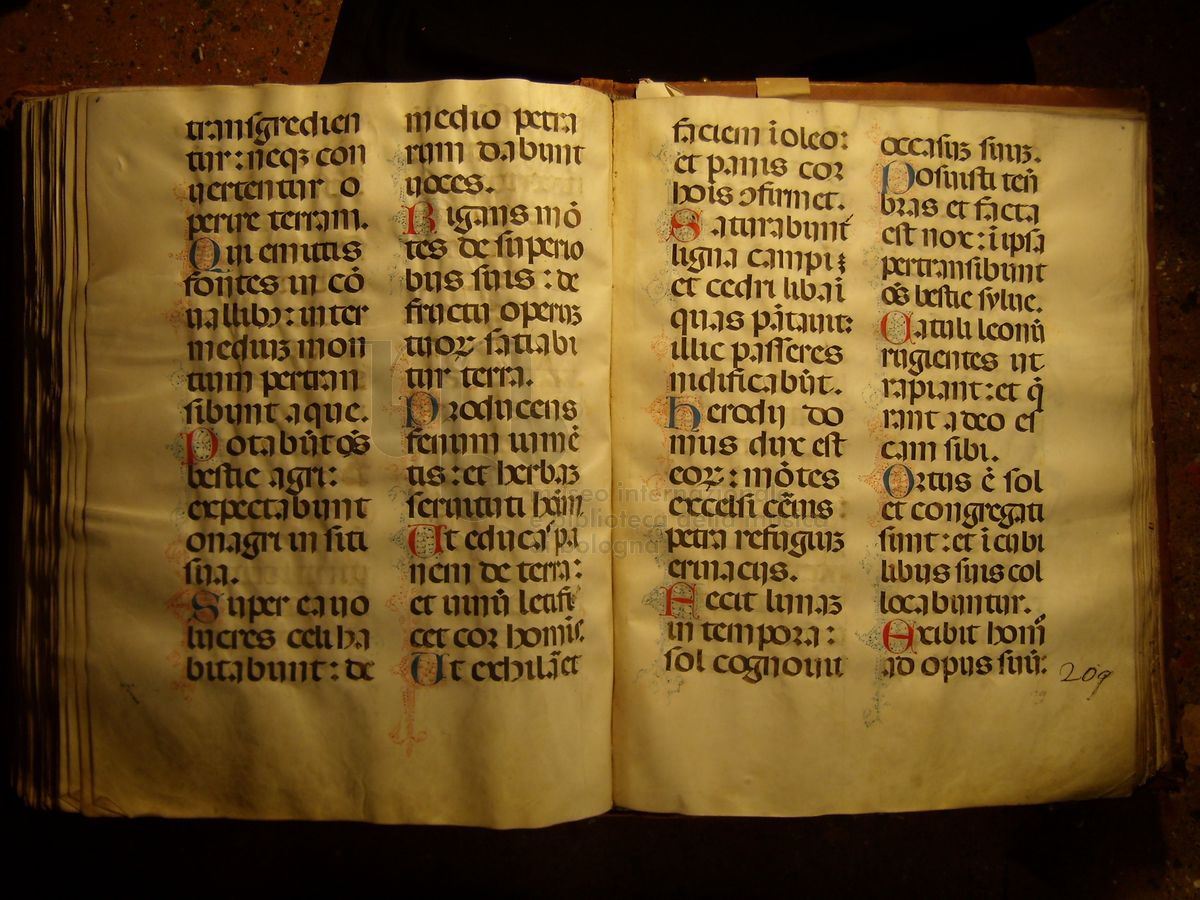 transgredien
tur: neqꝫ con
uertentur o
perire terram.
Qui emittis
fontes in cō
uallibꝫ: inter
mediuꝫ mon
tium pertran
sibunt aque.
Potabūt oēs
bestie agri:
expectabunt
onagri in siti
sua.
Super ea uo
lucres celi ha
bitabunt: de
medio petra
rum dabunt
uoces.
Rigans mō
tes de superio
bus suis: de
fructu operuꝫ
tuoꝝ satiabi
tur terra.
Producens
fenum iumē
tis: et herbaꝫ
seruituti homī.
Ut educas pa
nem de terra:
et uinū letifi
cet cor hominis.
Ut exhilaret
faciem ī oleo:
et panis cor
hois ↄfirmet.
Saturabunt
ligna campi ⁊
et cedri libaī
quas pātauit:
illic passeres
nidificabūt.
Herodij do
mus dux est
eoꝝ: mōtes
excelsi ceruis
petra refugiuꝫ
erinacijs.
Fecit lunaꝫ
in tempora:
sol cognouit
occasuꝫ suuꝫ.
Posuisti teń
bras et facta
est nox: ī ipsa
pertransibunt
oēs bestie sylue.
Catuli leonū
rugientes ut
rapiant: et q̄
rant a deo es
cam sibi.
Ortus ē sol
et congregati
sunt: et ī cubi
libus suis col
locabuntur.
Exibit homō
ad opus suū:
209
museo internazionale
e biblioteca della musica
di bologna